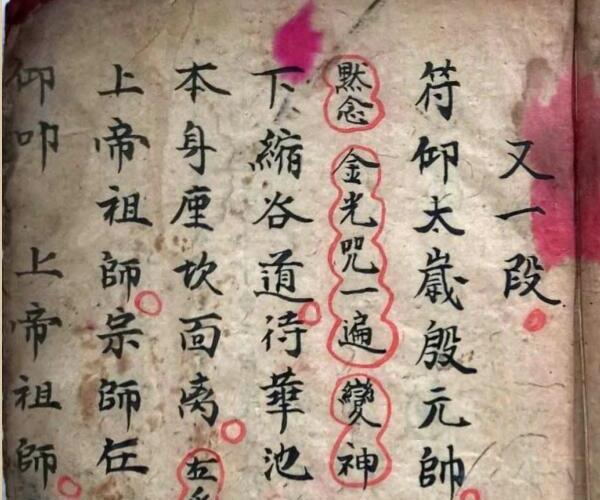 又一段
符仰太歲殷元帥
默念 金光咒一遍 變神
下縮谷道待華池
本身座坎面离
上帝祖師宗師在
仰叩 上帝祖師